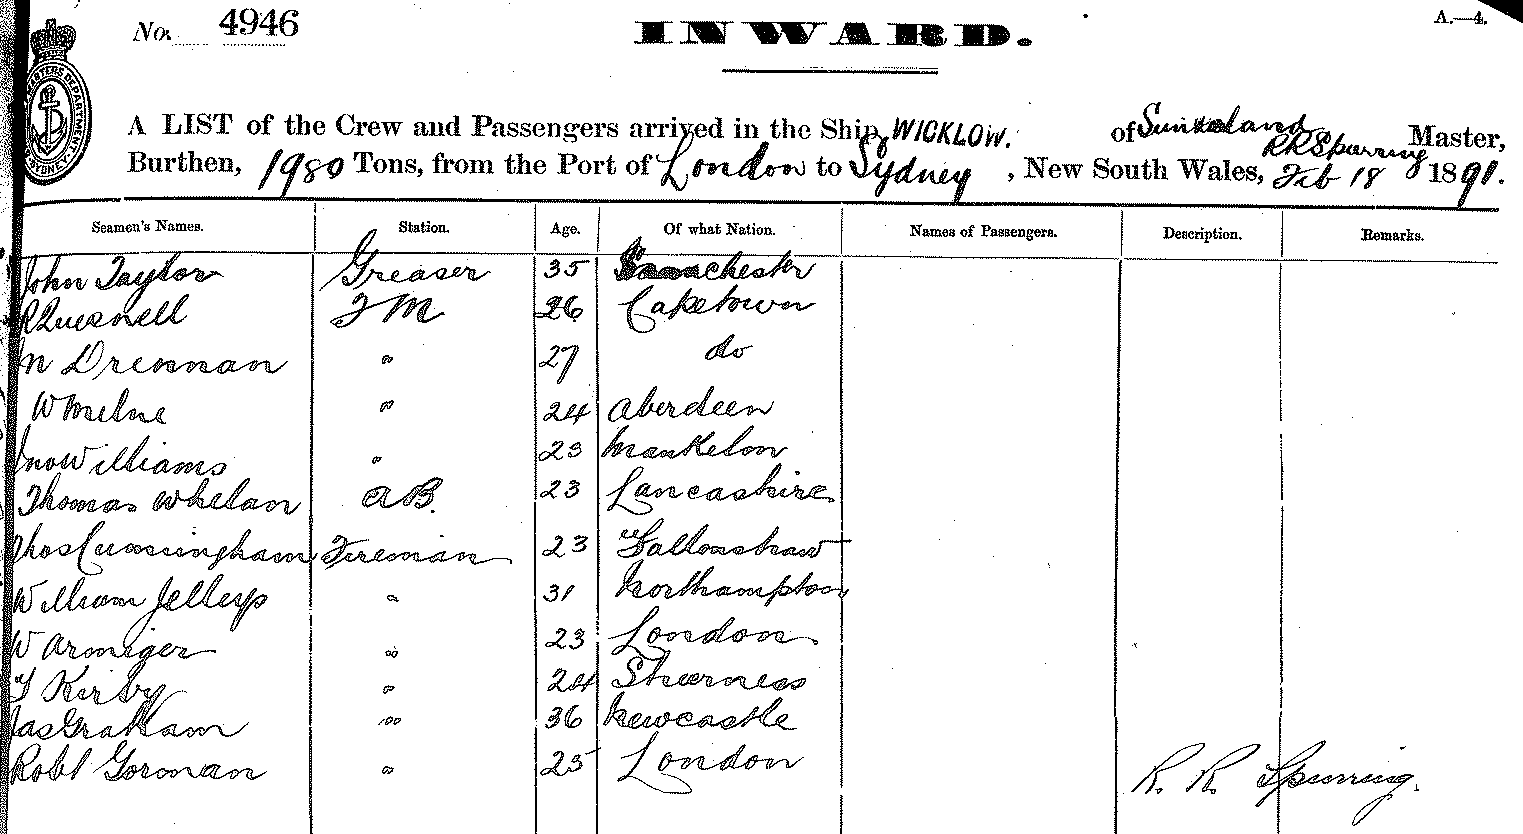 No. 4946
INWARD.
A.—4.
A LIST of the Crew and Passengers arrived in the Ship, WICKLOW. of Sunderland RRSpurring Master,
Burthen, 1980 Tons, from the Port of London to Sydney, New South Wales, Feb 18 1891.
Seamen's Names. Station. Age. Of what Nation. Names of Passengers. Description. Remarks.
John Taylor Greaser 35 Manchester
R Quesnell FM 26 Capetown
Drennan " 27 do
W Milne " 24 Aberdeen
Jno Williams " 23
Thomas Whelan AB. 23 Lancashire
Thos Cunningham Fireman 23
William Jellup " 31 Northampton
W Armiger " 23 London
T Kirby " 24 Sheerness
Jas Graham " 36 Newcastle
Robt Gorman " 25 London
R. R. Spurring.